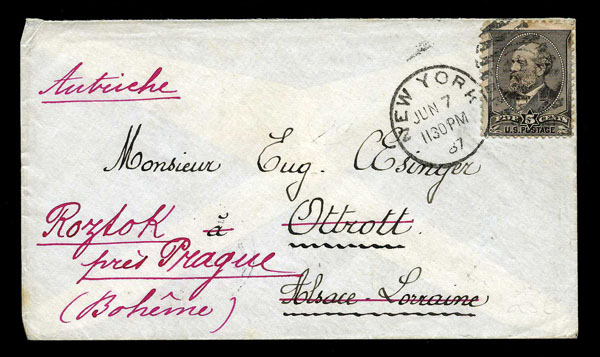 NEW YORK
JUN 7
1130PM
87
FIVE 5 CENTS
U.S. POSTAGE
Autriche
Monsieur Eug. Æsinger
Roztok à Ottrott
près Prague
(Bohême) Alsace-Lorraine